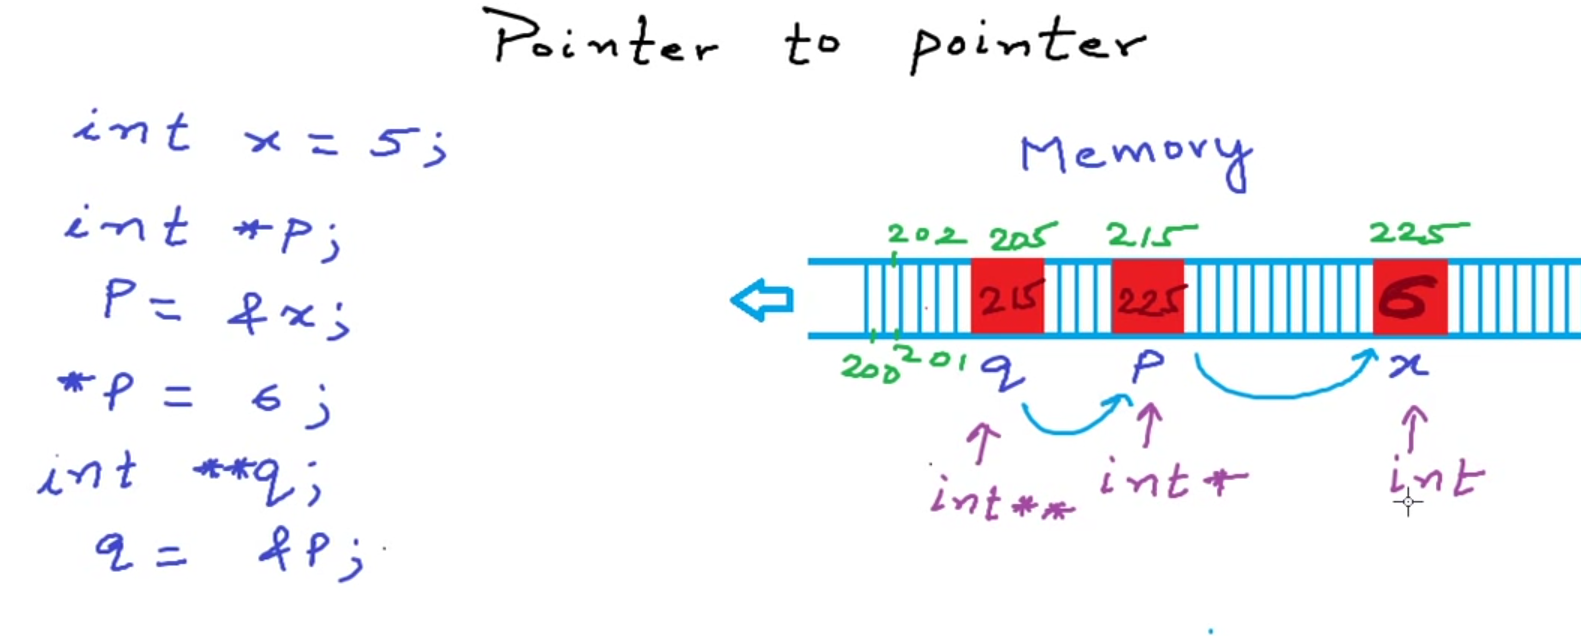 Pointer to pointer
int x = 5;
int *p;
p = &x;
*p = 6;
int **q;
q = &p;
Memory
202 205 215 225
215 225 6
200 201 q p x
int** int* int